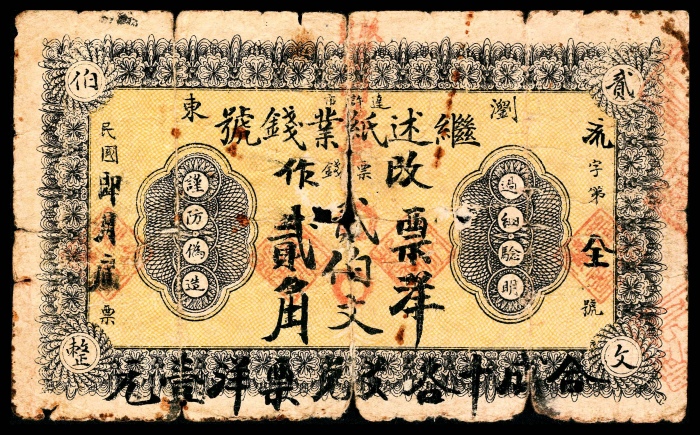 瀏東
達滸市
繼述紙業錢號
貳
伯
文
整
字第全號
過細驗明
改票洋
錢票
貳伯文
作貳角
謹防偽造
民國即月底票
合成十兌票洋壹元